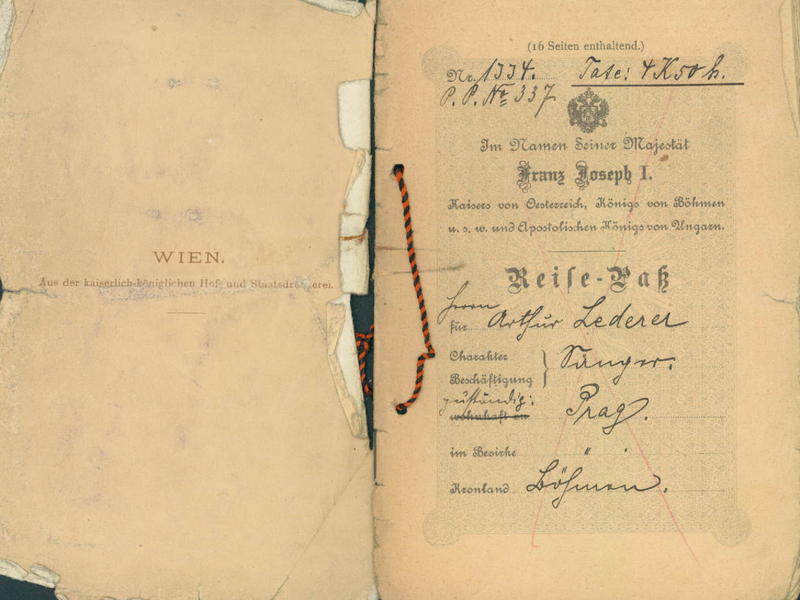 WIEN.
Aus der kaiserlich-königlichen Hof- und Staatsdruckerei.
(16 Seiten enthaltend.)
Nr. 1334. Taxe: 4 K 50 h.
P. P. No 337
Im Namen Seiner Majestät
Franz Joseph I.
Kaisers von Oesterreich, Königs von Böhmen
u. s. w. und Apostolischen Königs von Ungarn.
Reise-Paß
Herrn
für Arthur Lederer
Charakter
Beschäftigung } Sänger.
zuständig:
wohnhaft in Prag.
im Bezirke "
Kronland Böhmen.